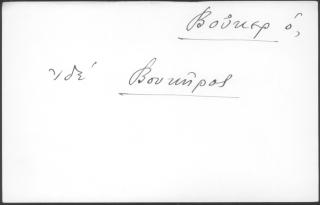 Βοῦκερ ὁ,
ἰδέ Βουκῆρος